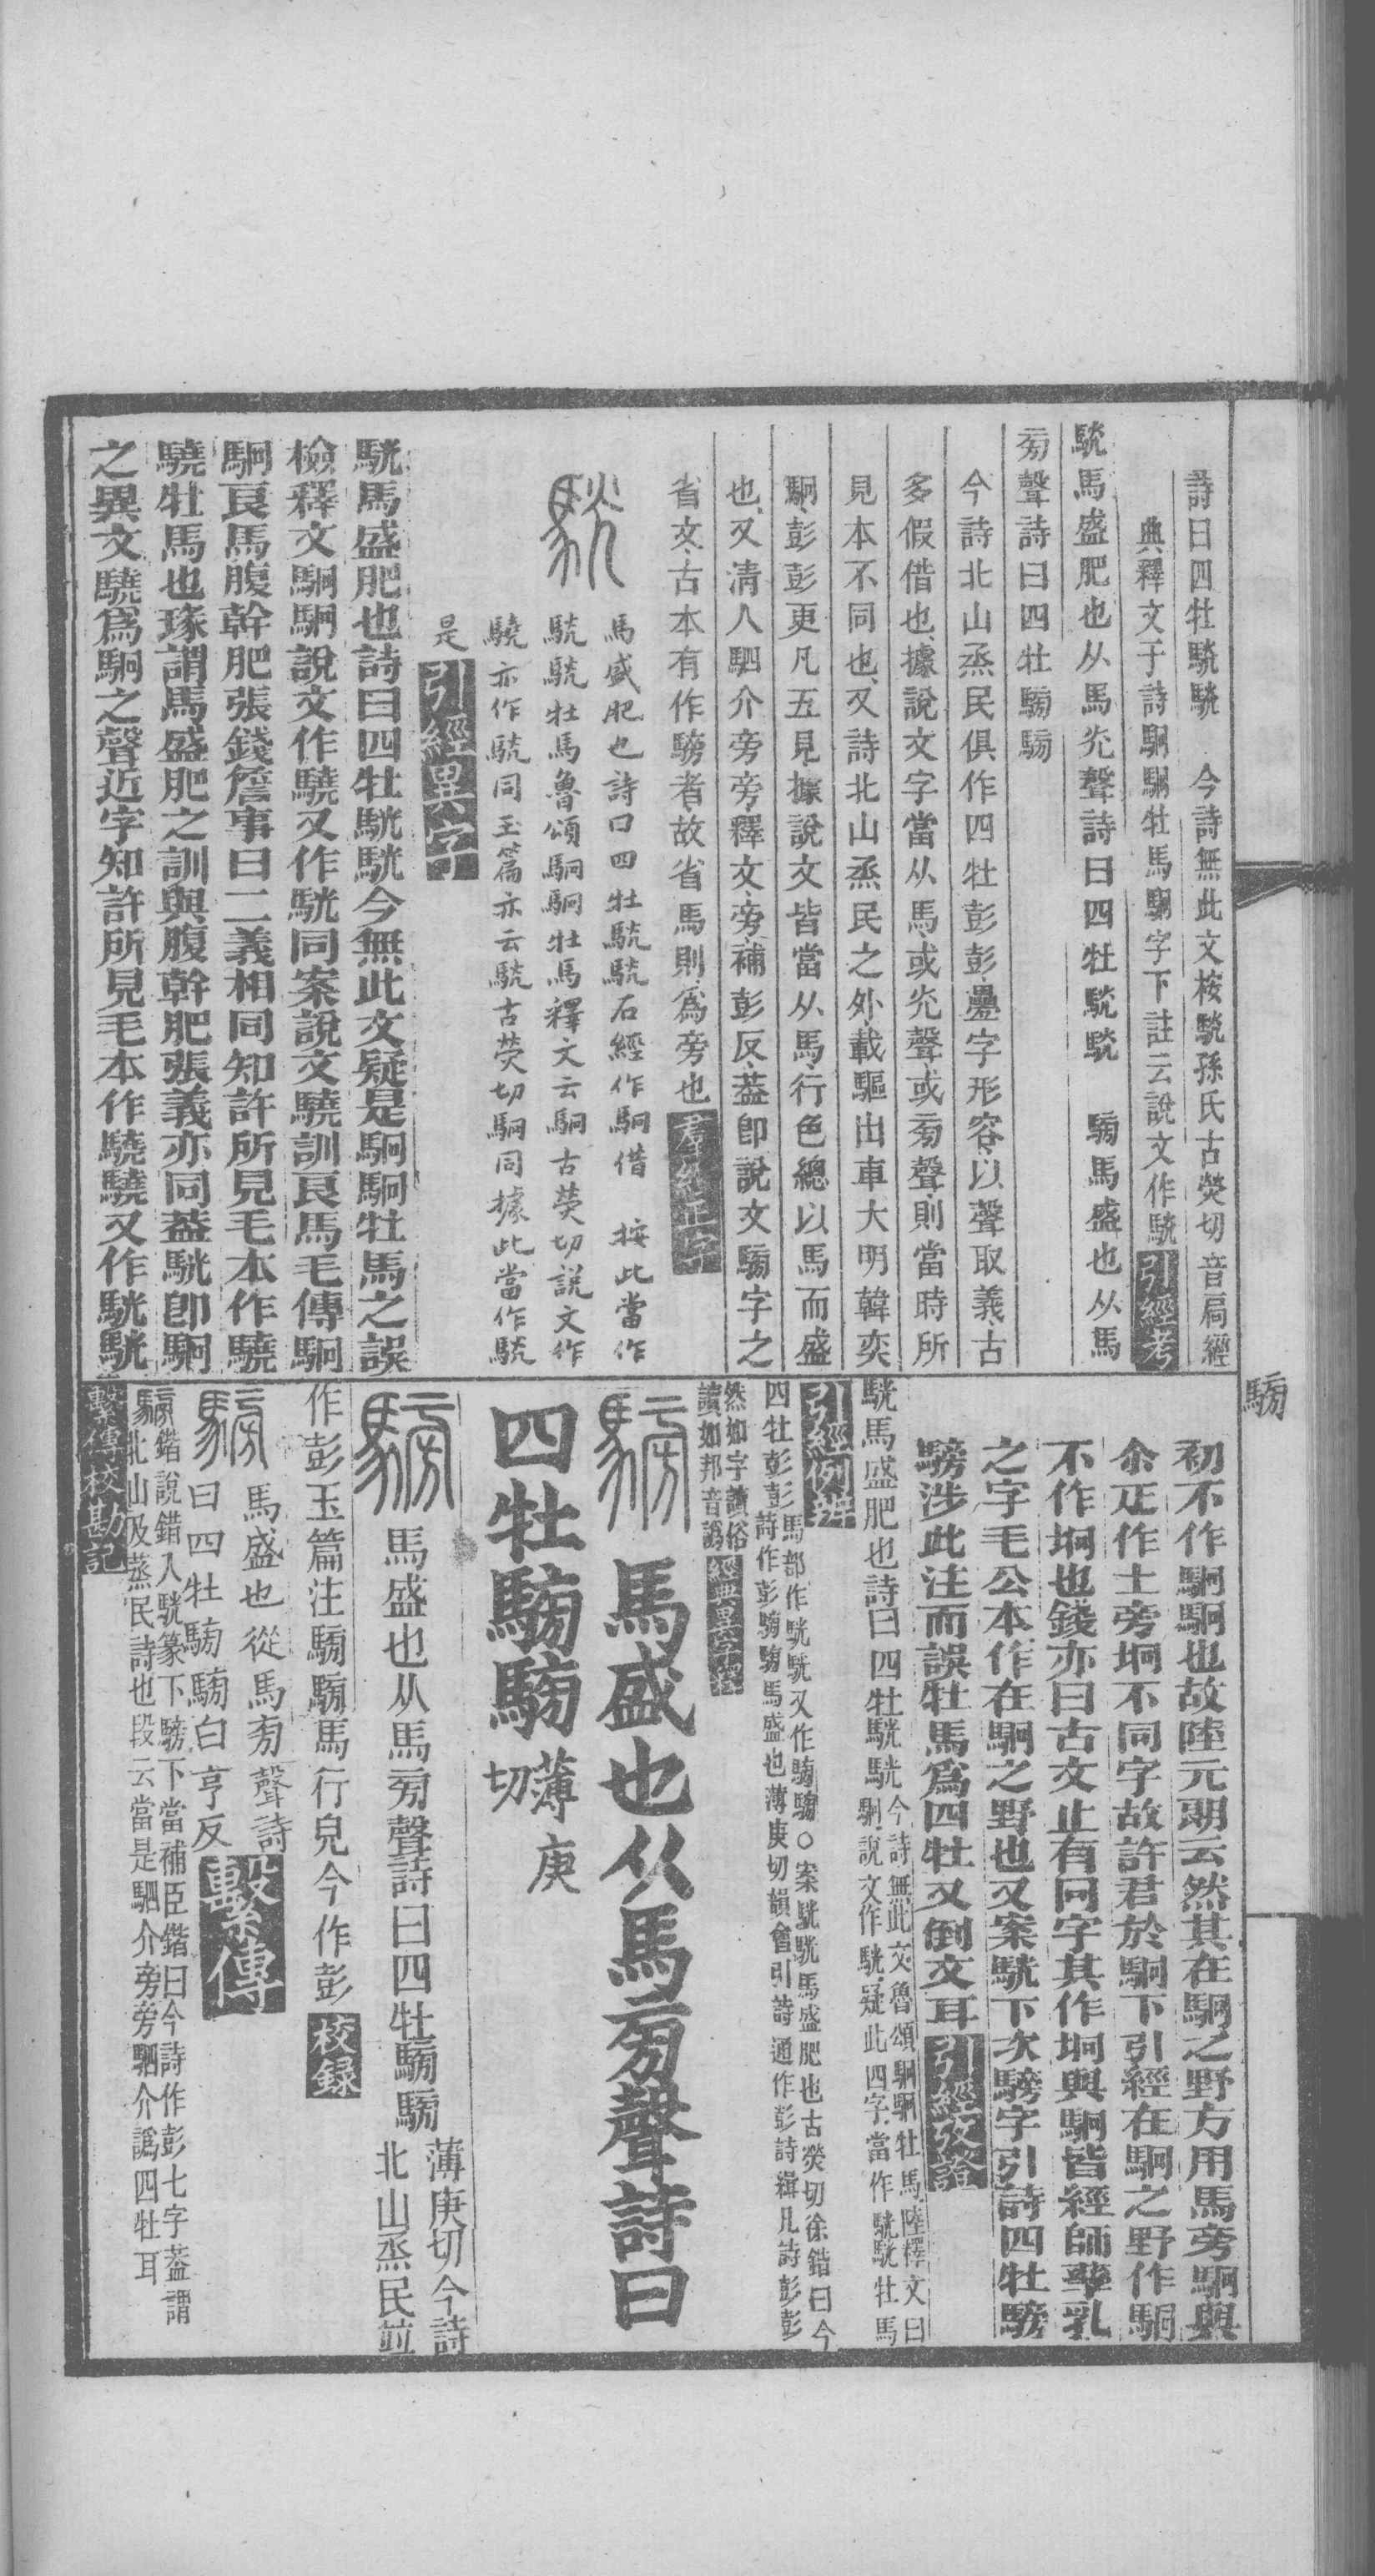 詩曰四牡駫駫　今詩無此文桉駫孫氏古熒切音扃經
典釋文于詩駉駉牡馬駉字下註云說文作駫引經考
駫馬盛肥也从馬光聲詩曰四牡駫駫　騯馬盛也从馬
㫄聲詩曰四牡騯騯
今詩北山烝民俱作四牡彭彭疊字形容以聲取義古
多假借也據說文字當从馬或光聲或㫄聲則當時所
見本不同也又詩北山烝民之外載驅出車大明韓奕
駉彭彭更凡五見據說文皆當从馬行色總以馬而盛
也又清人駟介旁旁釋文旁補彭反葢即說文騯字之
省文古本有作騯者故省馬則爲旁也羣經正字
駫
馬盛肥也詩曰四牡駫駫石經作駉借　按此當作
駫駫牡馬魯頌駉駉牡馬釋文云駉古熒切說文作
驍亦作駫同玉篇亦云駫古熒切駉同據此當作駫
是引經異字
駫馬盛肥也詩曰四牡駫駫今無此文疑是駉駉牡馬之誤
檢釋文駉駉說文作驍又作駫同案說文驍訓良馬毛傳駉
駉良馬腹幹肥張錢詹事曰二義相同知許所見毛本作驍
驍牡馬也瑑謂馬盛肥之訓與腹幹肥張義亦同葢駫卽駉
之異文驍爲駉之聲近字知許所見毛本作驍驍又作駫駫
騯
初不作駉駉也故陸元朗云然其在駉之野方用馬旁駉與
余疋作土旁坰不同字故許君於駉下引經在駉之野作駉
不作坰也錢亦曰古文止有冋字其作坰與駉皆經師孳乳
之字毛公本作在駉之野也又案駫下次騯字引詩四牡騯
騯涉此注而誤牡馬爲四牡又倒文耳引經攷證
駫馬盛肥也詩曰四牡駫駫今詩無此文魯頌駉駉牡馬陸釋文曰
駉說文作駫疑此四字當作駫駫牡馬
引經例辨
四牡彭彭馬部作駫駫又作騯騯○案駫駫馬盛肥也古熒切徐鍇曰今
詩作彭騯騯馬盛也薄庚切韻會引詩通作彭詩緝凡詩彭彭
然如字讀俗
讀如邦音譌經典異字釋
騯馬盛也从馬㫄聲詩曰
四牡騯騯薄庚
切
騯馬盛也从馬㫄聲詩曰四牡騯騯薄庚切今詩
北山烝民竝
作彭玉篇注騯騯馬行皃今作彭校錄
騯馬盛也從馬㫄聲詩
曰四牡騯騯白亨反繫傳
騯鍇說錯入駫篆下騯下當補臣鍇曰今詩作彭七字葢謂
北山及蒸民詩也段云當是駟介旁旁駟介譌四牡耳
繫傳校勘記